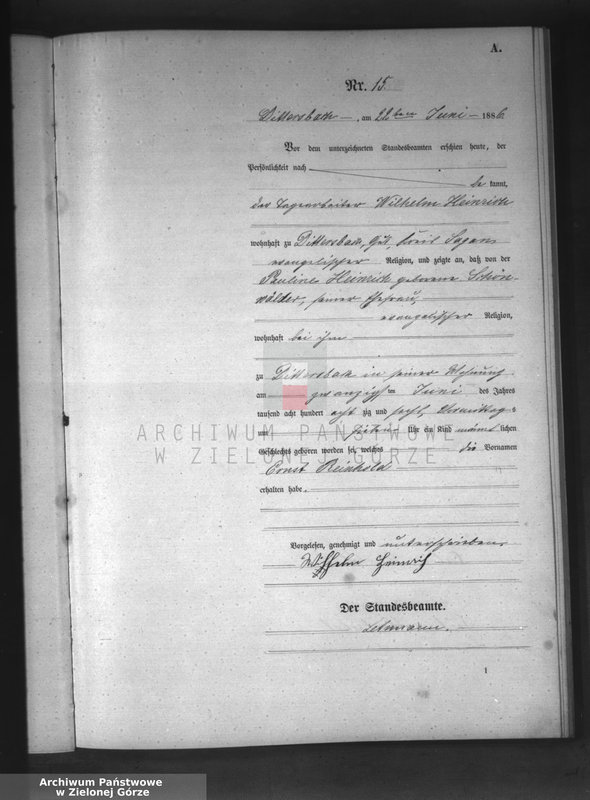 A.
Nr. 15.
Dittersbach, am 22ten Juni 1886
Vor dem unterzeichneten Standesbeamten erschien heute, der
Persönlichkeit nach
be kannt,
der Tagearbeiter Wilhelm Heinrich
wohnhaft zu Dittersbach, Kreis Sagan
evangelischer Religion, und zeigte an, daß von der
Pauline Heinrich geborene Schön-
wälder, seiner Ehefrau,
evangelischer Religion,
wohnhaft bei ihm
zu Dittersbach in seiner Wohnung
am zwanzigsten Juni des Jahres
tausend acht hundert acht zig und sechs, Vormittags
um sieben Uhr ein Kind männlichen
Geschlechts geboren worden sei, welches die Vornamen
Ernst Reinhold
erhalten habe.
Vorgelesen, genehmigt und unterschrieben
Wilhelm Heinrich
Der Standesbeamte.
1
ARCHIWUM PAŃSTWOWE
W ZIELONEJ GÓRZE
Archiwum Państwowe
w Zielonej Górze